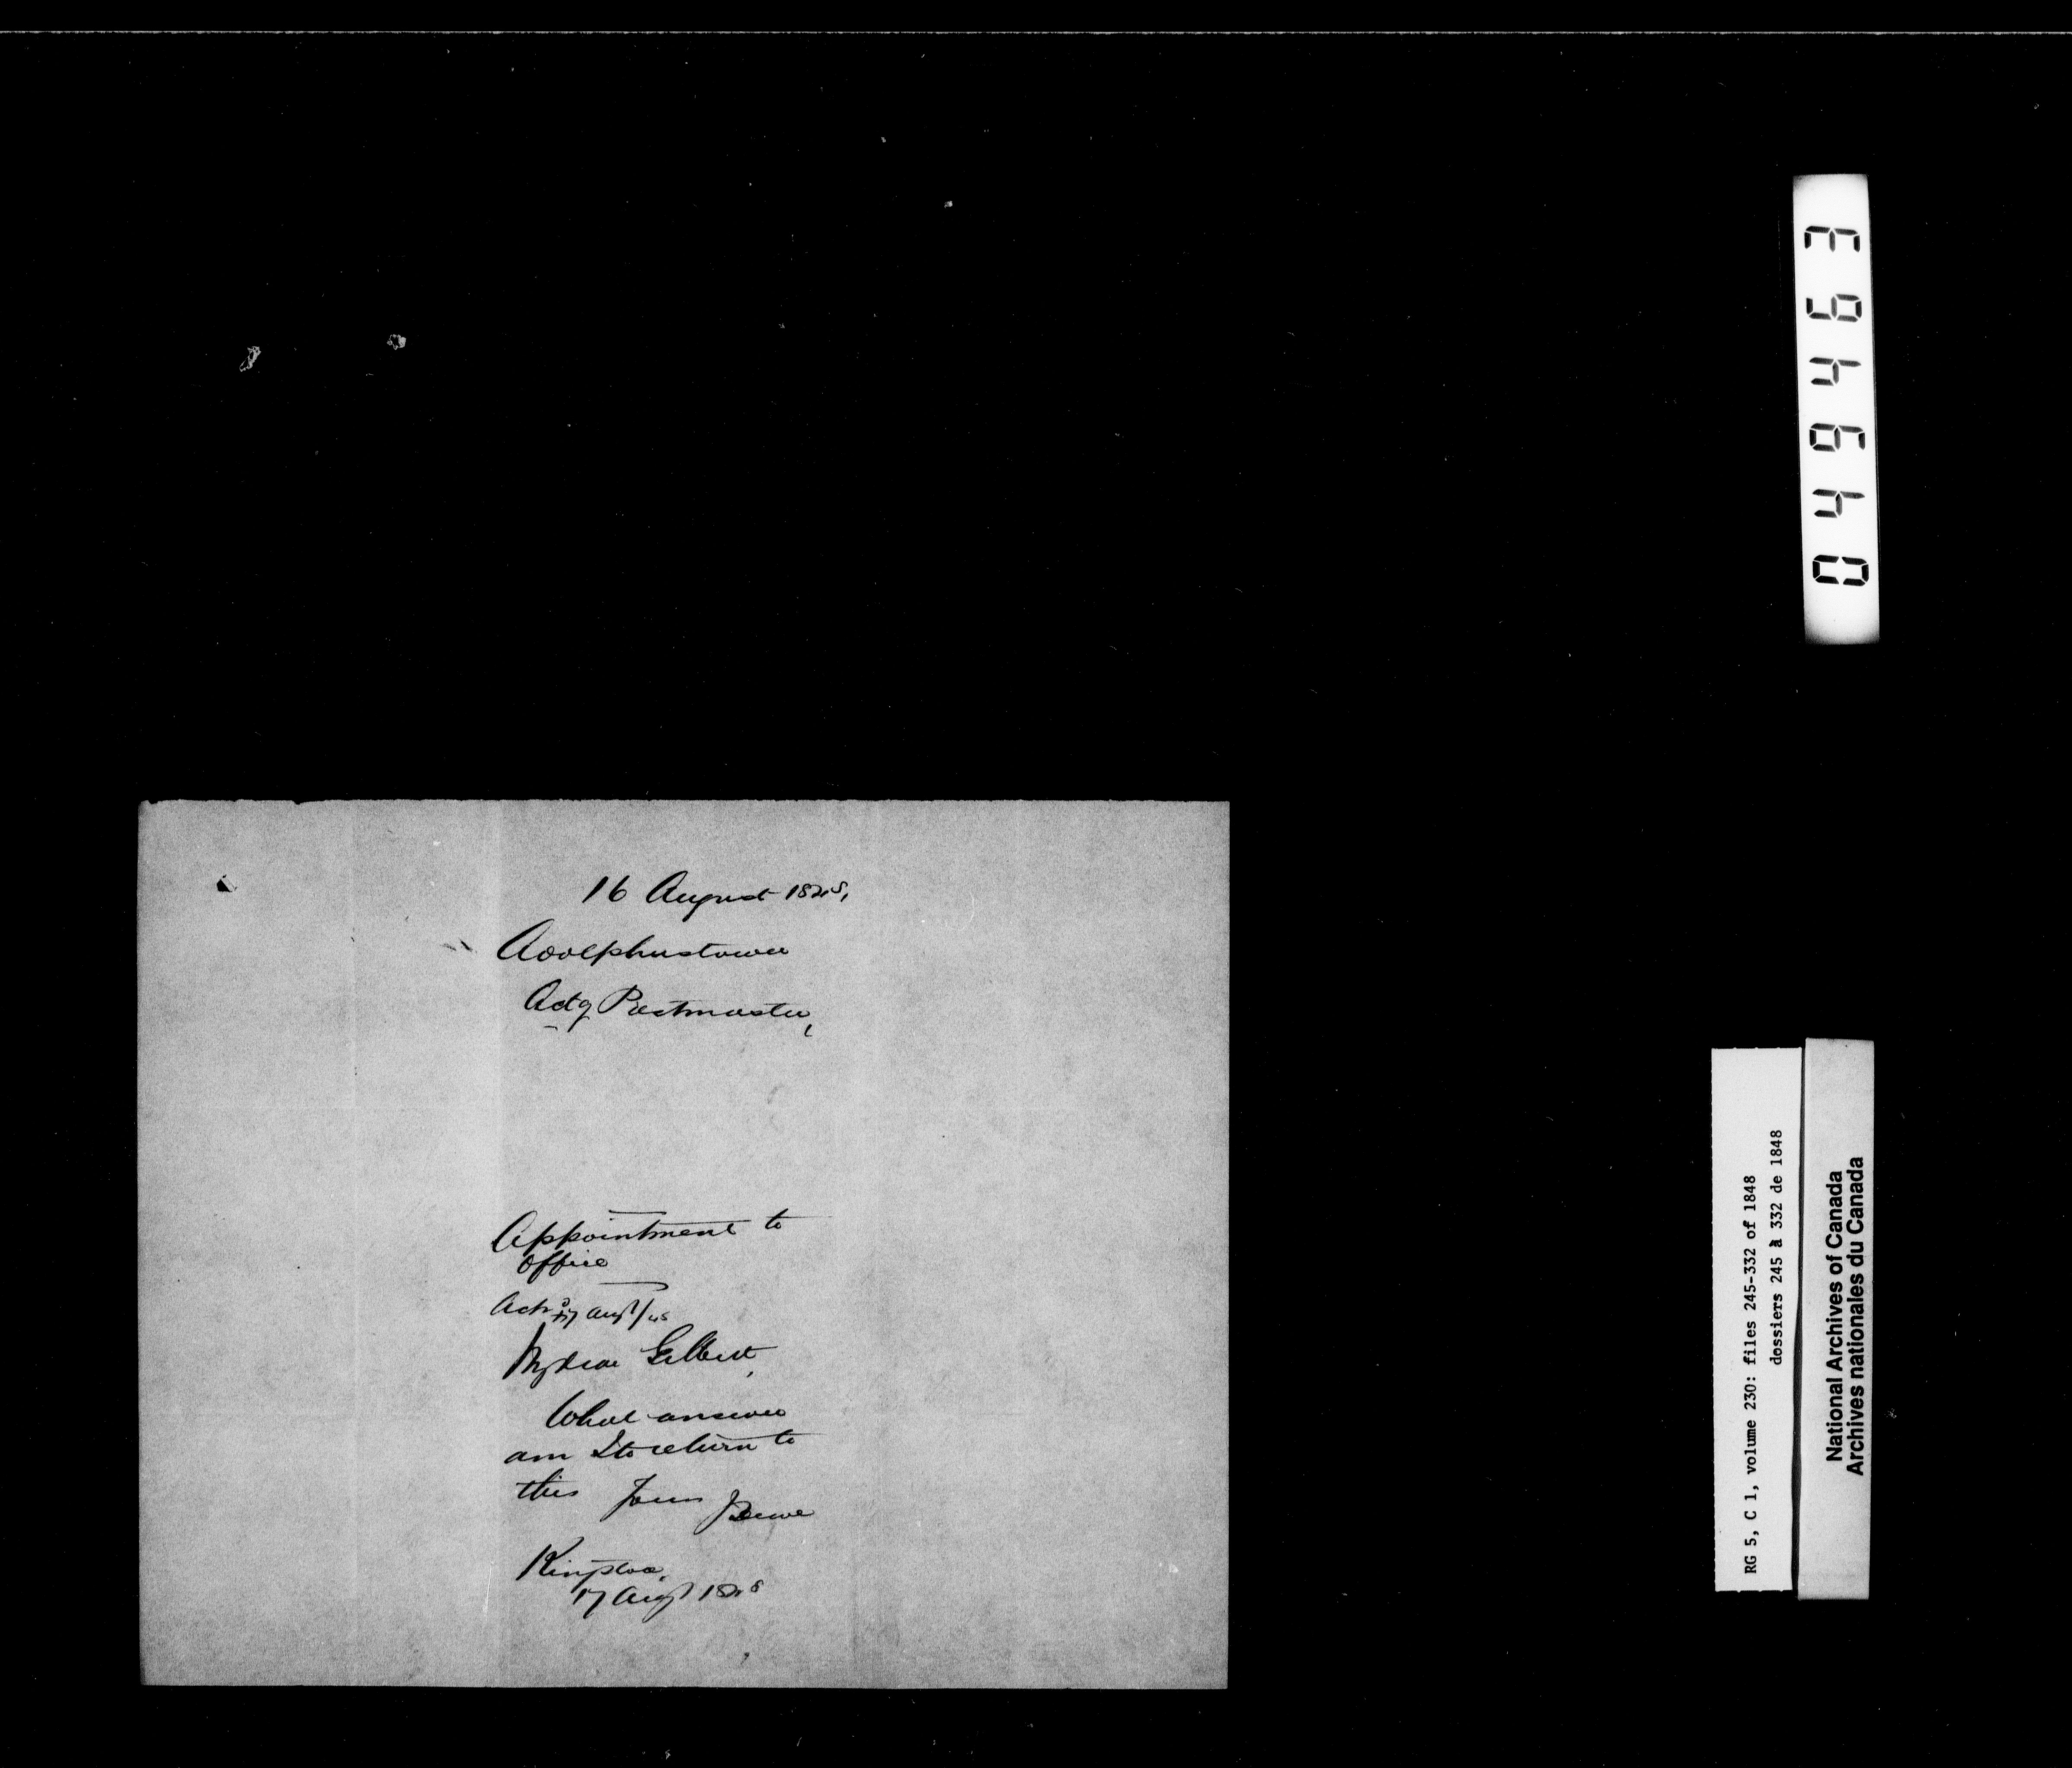 16 August 1848,
Adolphustown
Actg Postmaster,
Appointment to
office
Ackd 17 Augt/48
My dear Gilbert,
What answer
am I to return to
this Yours JDewe
Kingston,
17 Augt 1848
046493
RG 5, C 1, volume 230: files 245-332 of 1848
dossiers 245 à 332 de 1848
National Archives of Canada
Archives nationales du Canada